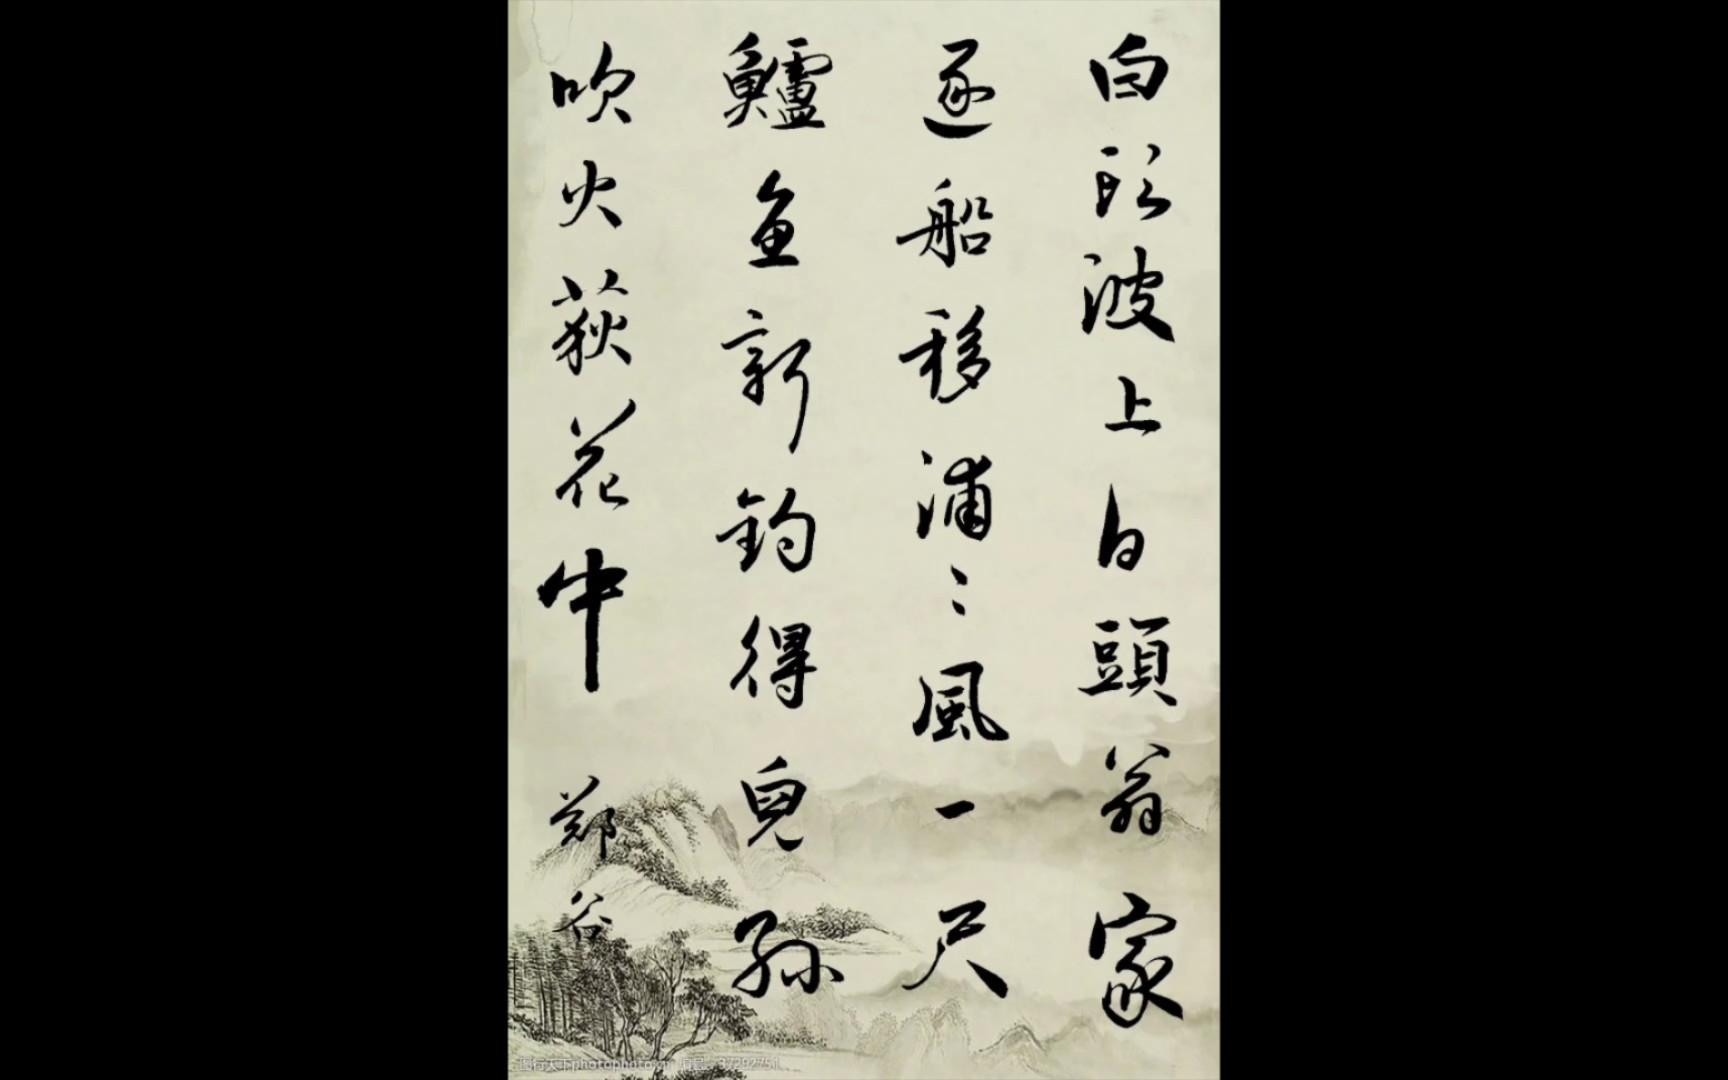 白頭波上白頭翁家
逐船移浦〻風一尺
鱸鱼新釣得兒孫
吹火荻花中 郑谷
图行天下photophoto.cn 编号：37292751